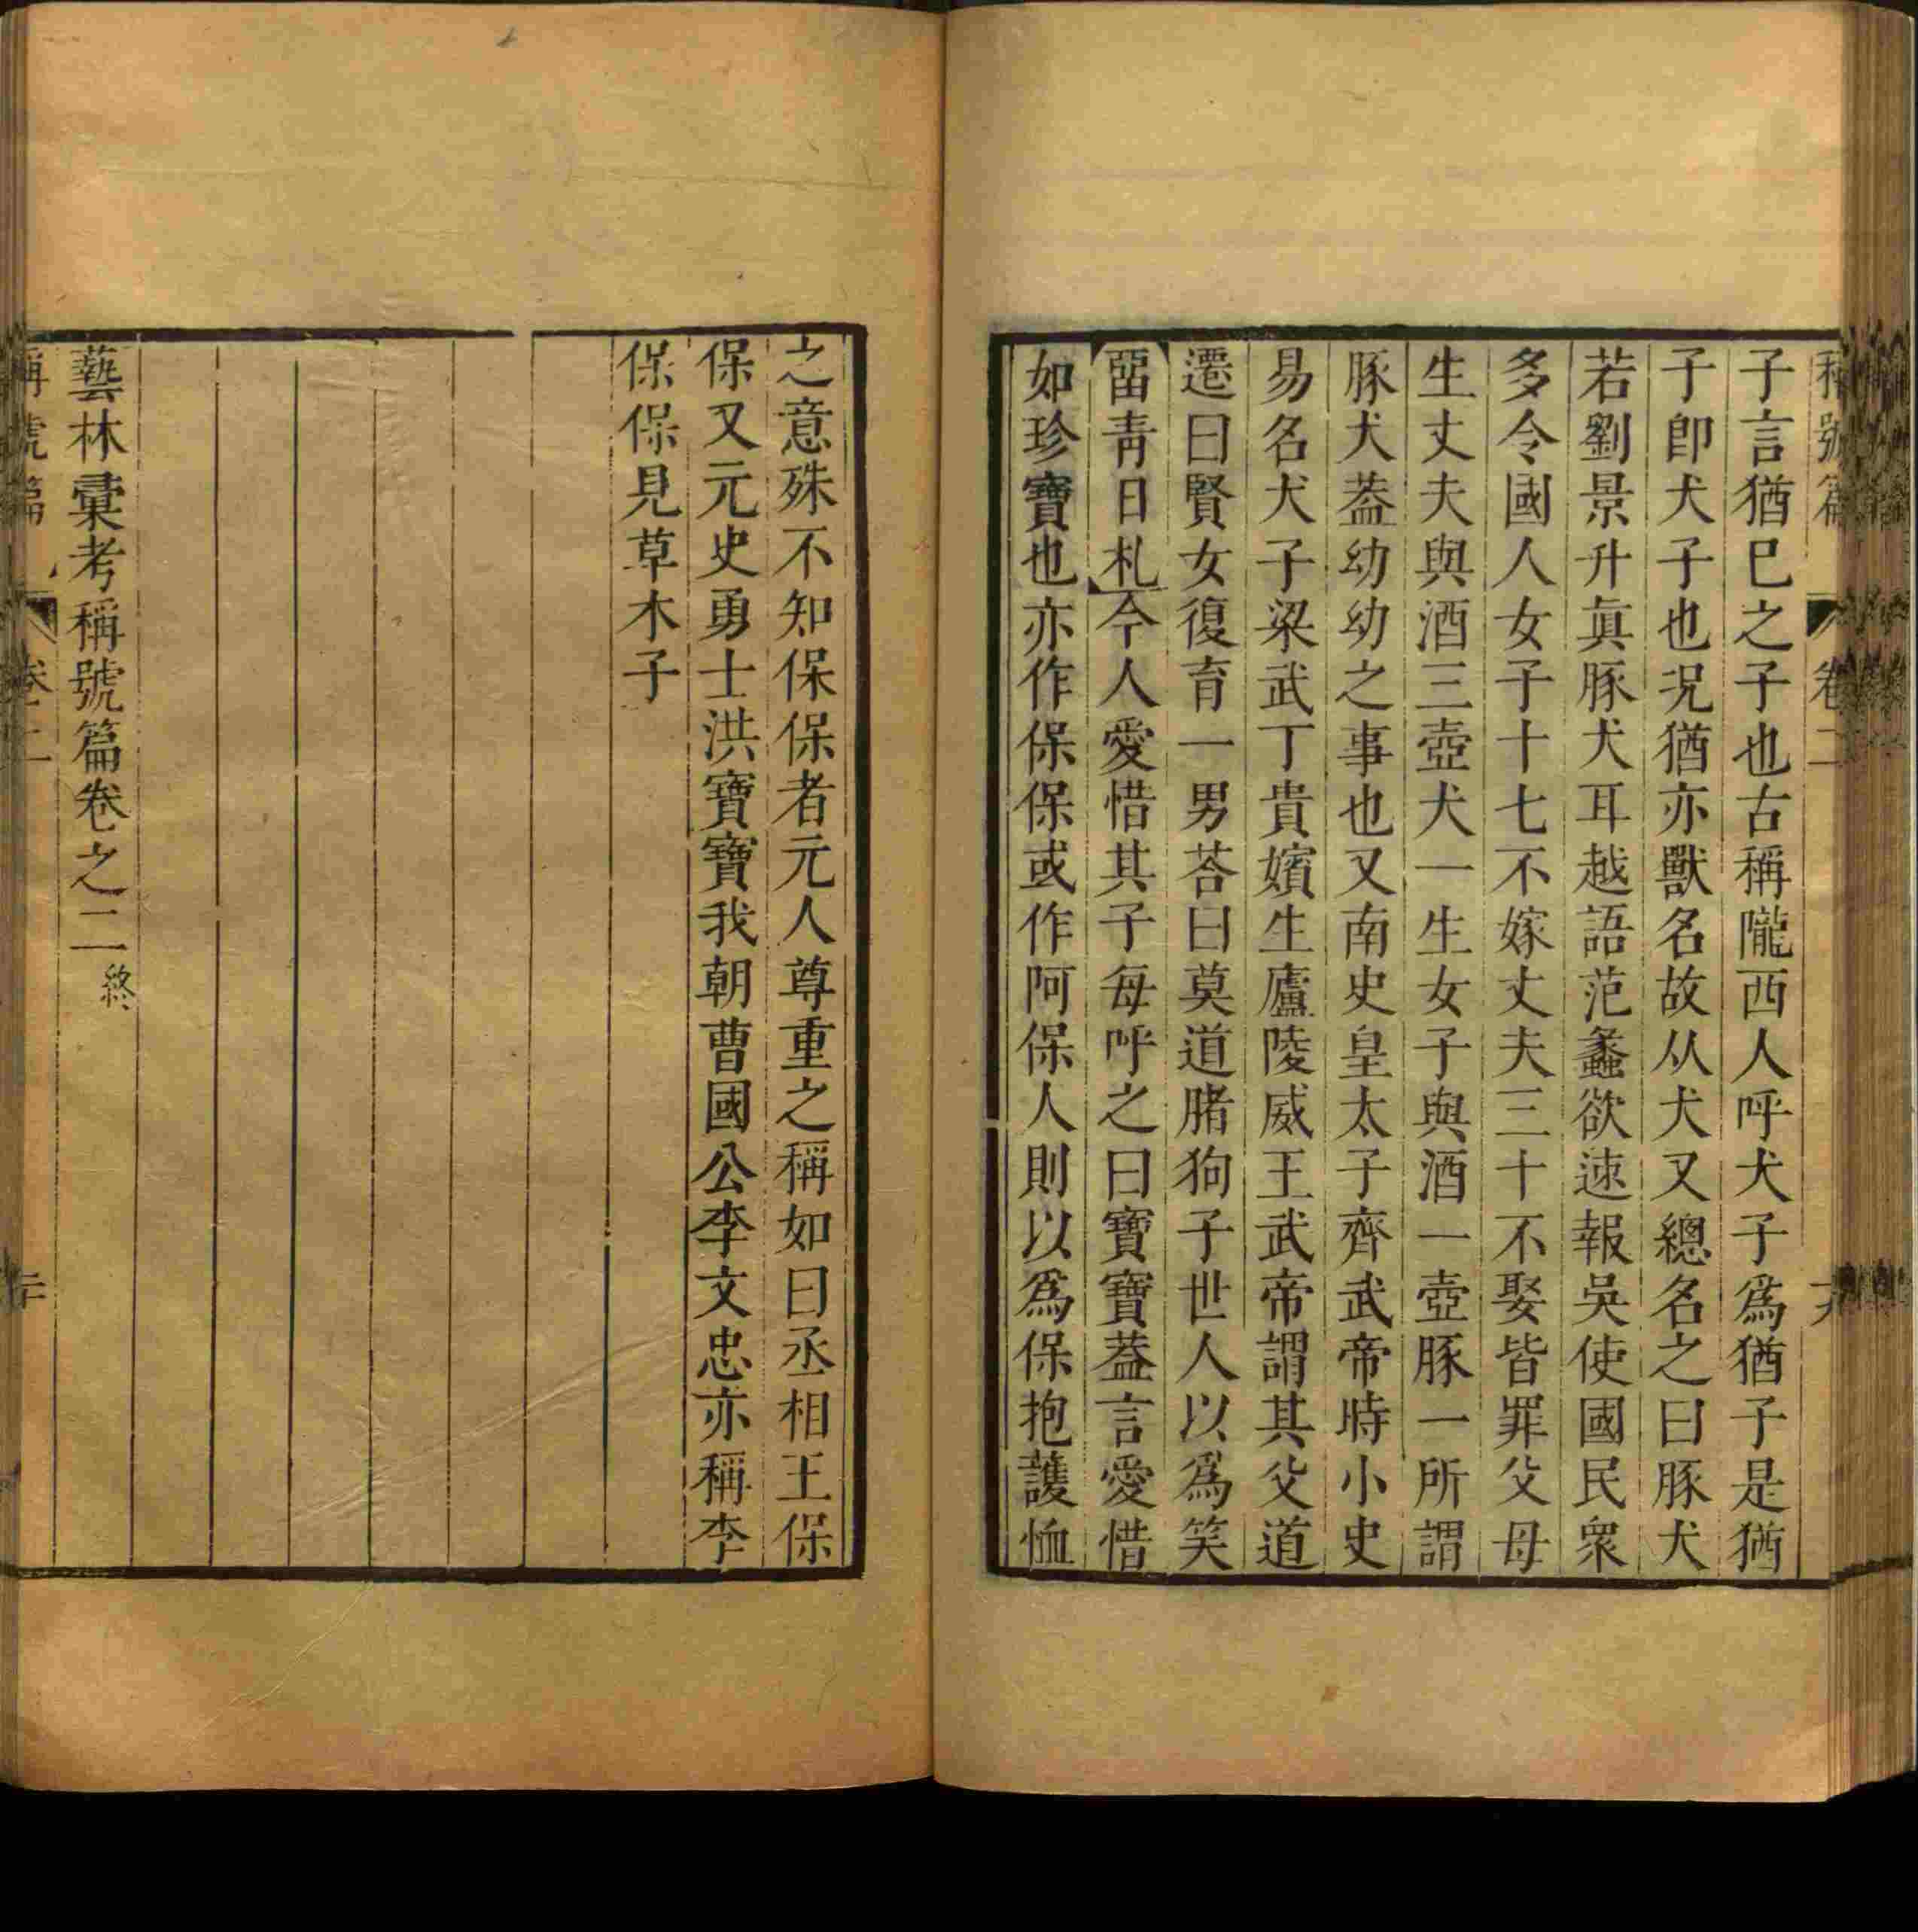 稱號篇 卷二 十九
子言猶巳之子也古稱隴西人呼犬子爲猶子是猶
子卽犬子也況猶亦獸名故从犬又總名之曰豚犬
若劉景升眞豚犬耳越語范蠡欲速報吳使國民衆
多令國人女子十七不嫁丈夫三十不娶皆罪父母
生丈夫與酒三壺犬一生女子與酒一壺豚一所謂
豚犬葢幼幼之事也又南史皇太子齊武帝時小史
易名犬子梁武丁貴嬪生廬陵威王武帝謂其父道
遷曰賢女復育一男荅曰莫道賭狗子世人以爲笑
畱青日札今人愛惜其子每呼之曰寶寶葢言愛惜
如珍寶也亦作保保或作阿保人則以爲保抱護恤
之意殊不知保保者元人尊重之稱如曰丞相王保
保又元史勇士洪寶寶我朝曹國公李文忠亦稱李
保保見草木子
藝林彙考稱號篇卷之二終
稱號篇 卷二 二十